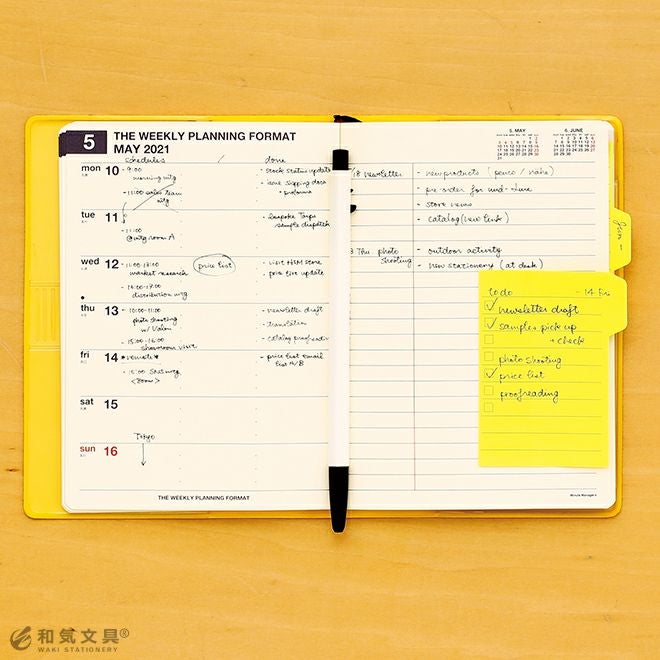 5
THE WEEKLY PLANNING FORMAT
MAY 2021
schedules
done
mon 10
9:00
morning mtg
11:00 sales team
mtg
- stock status update
- proforma
tue 11
11:00
@mtg room A
sample dispatch
wed 12
11:00
market research
distribution mtg
price list
- price list update
thu 13
10:00-11:00
photo shooting
15:00-16:00
showroom visit
- newsletter draft
- translation
- catalog proofreading
fri 14
- price list email
list A/B
sat 15
sun 16
Tokyo
THE WEEKLY PLANNING FORMAT
5. MAY
6. JUNE
18 newsletter
- new products (
- pre-order for mid-June
- store news
- catalog (new link)
Thu photo
shooting
- outdoor activity
- new stationery (at desk)
to do
- 14 Fri
newsletter draft
samples pick up
+ check
photo shooting
price list
proofreading
和気文具®
WAKI STATIONERY